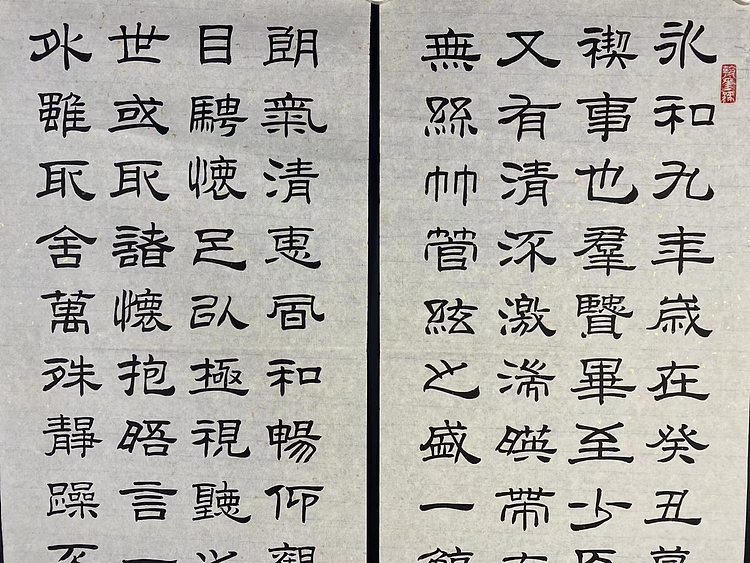 永和九年歲在癸丑暮
禊事也羣賢畢至少長
又有清流激湍暎帶左
無絲竹管絃之盛一觴
朗氣清惠風和暢仰觀
目騁懷足以極視聽之
世或取諸懷抱晤言一
外雖取舍萬殊靜躁不